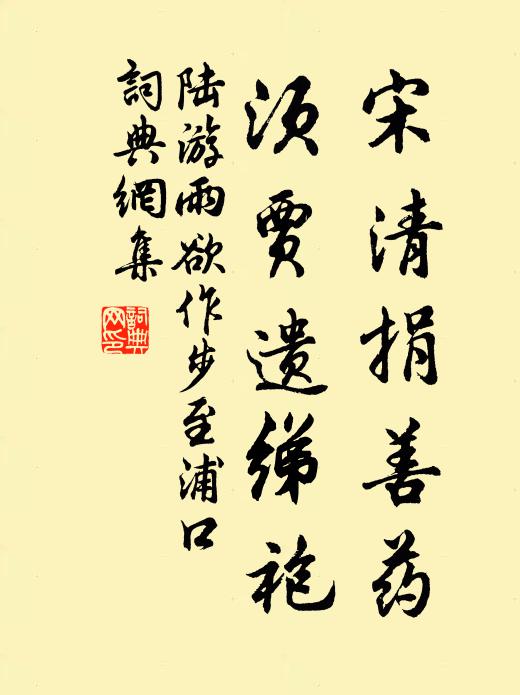 宋清捐善药
须贾遗绨袍
陆游雨欲作步至浦口
詞典網集
詞典网印